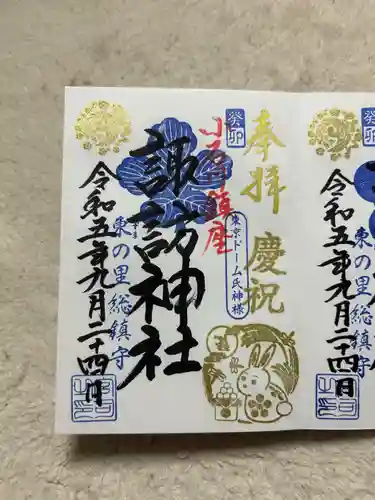 癸卯
奉拝 慶祝
小石川鎮座
東京ドーム氏神様
諏訪神社
東の里総鎮守
令和五年九月二十四日
癸卯
東の里総鎮守
令和五年九月二十四日